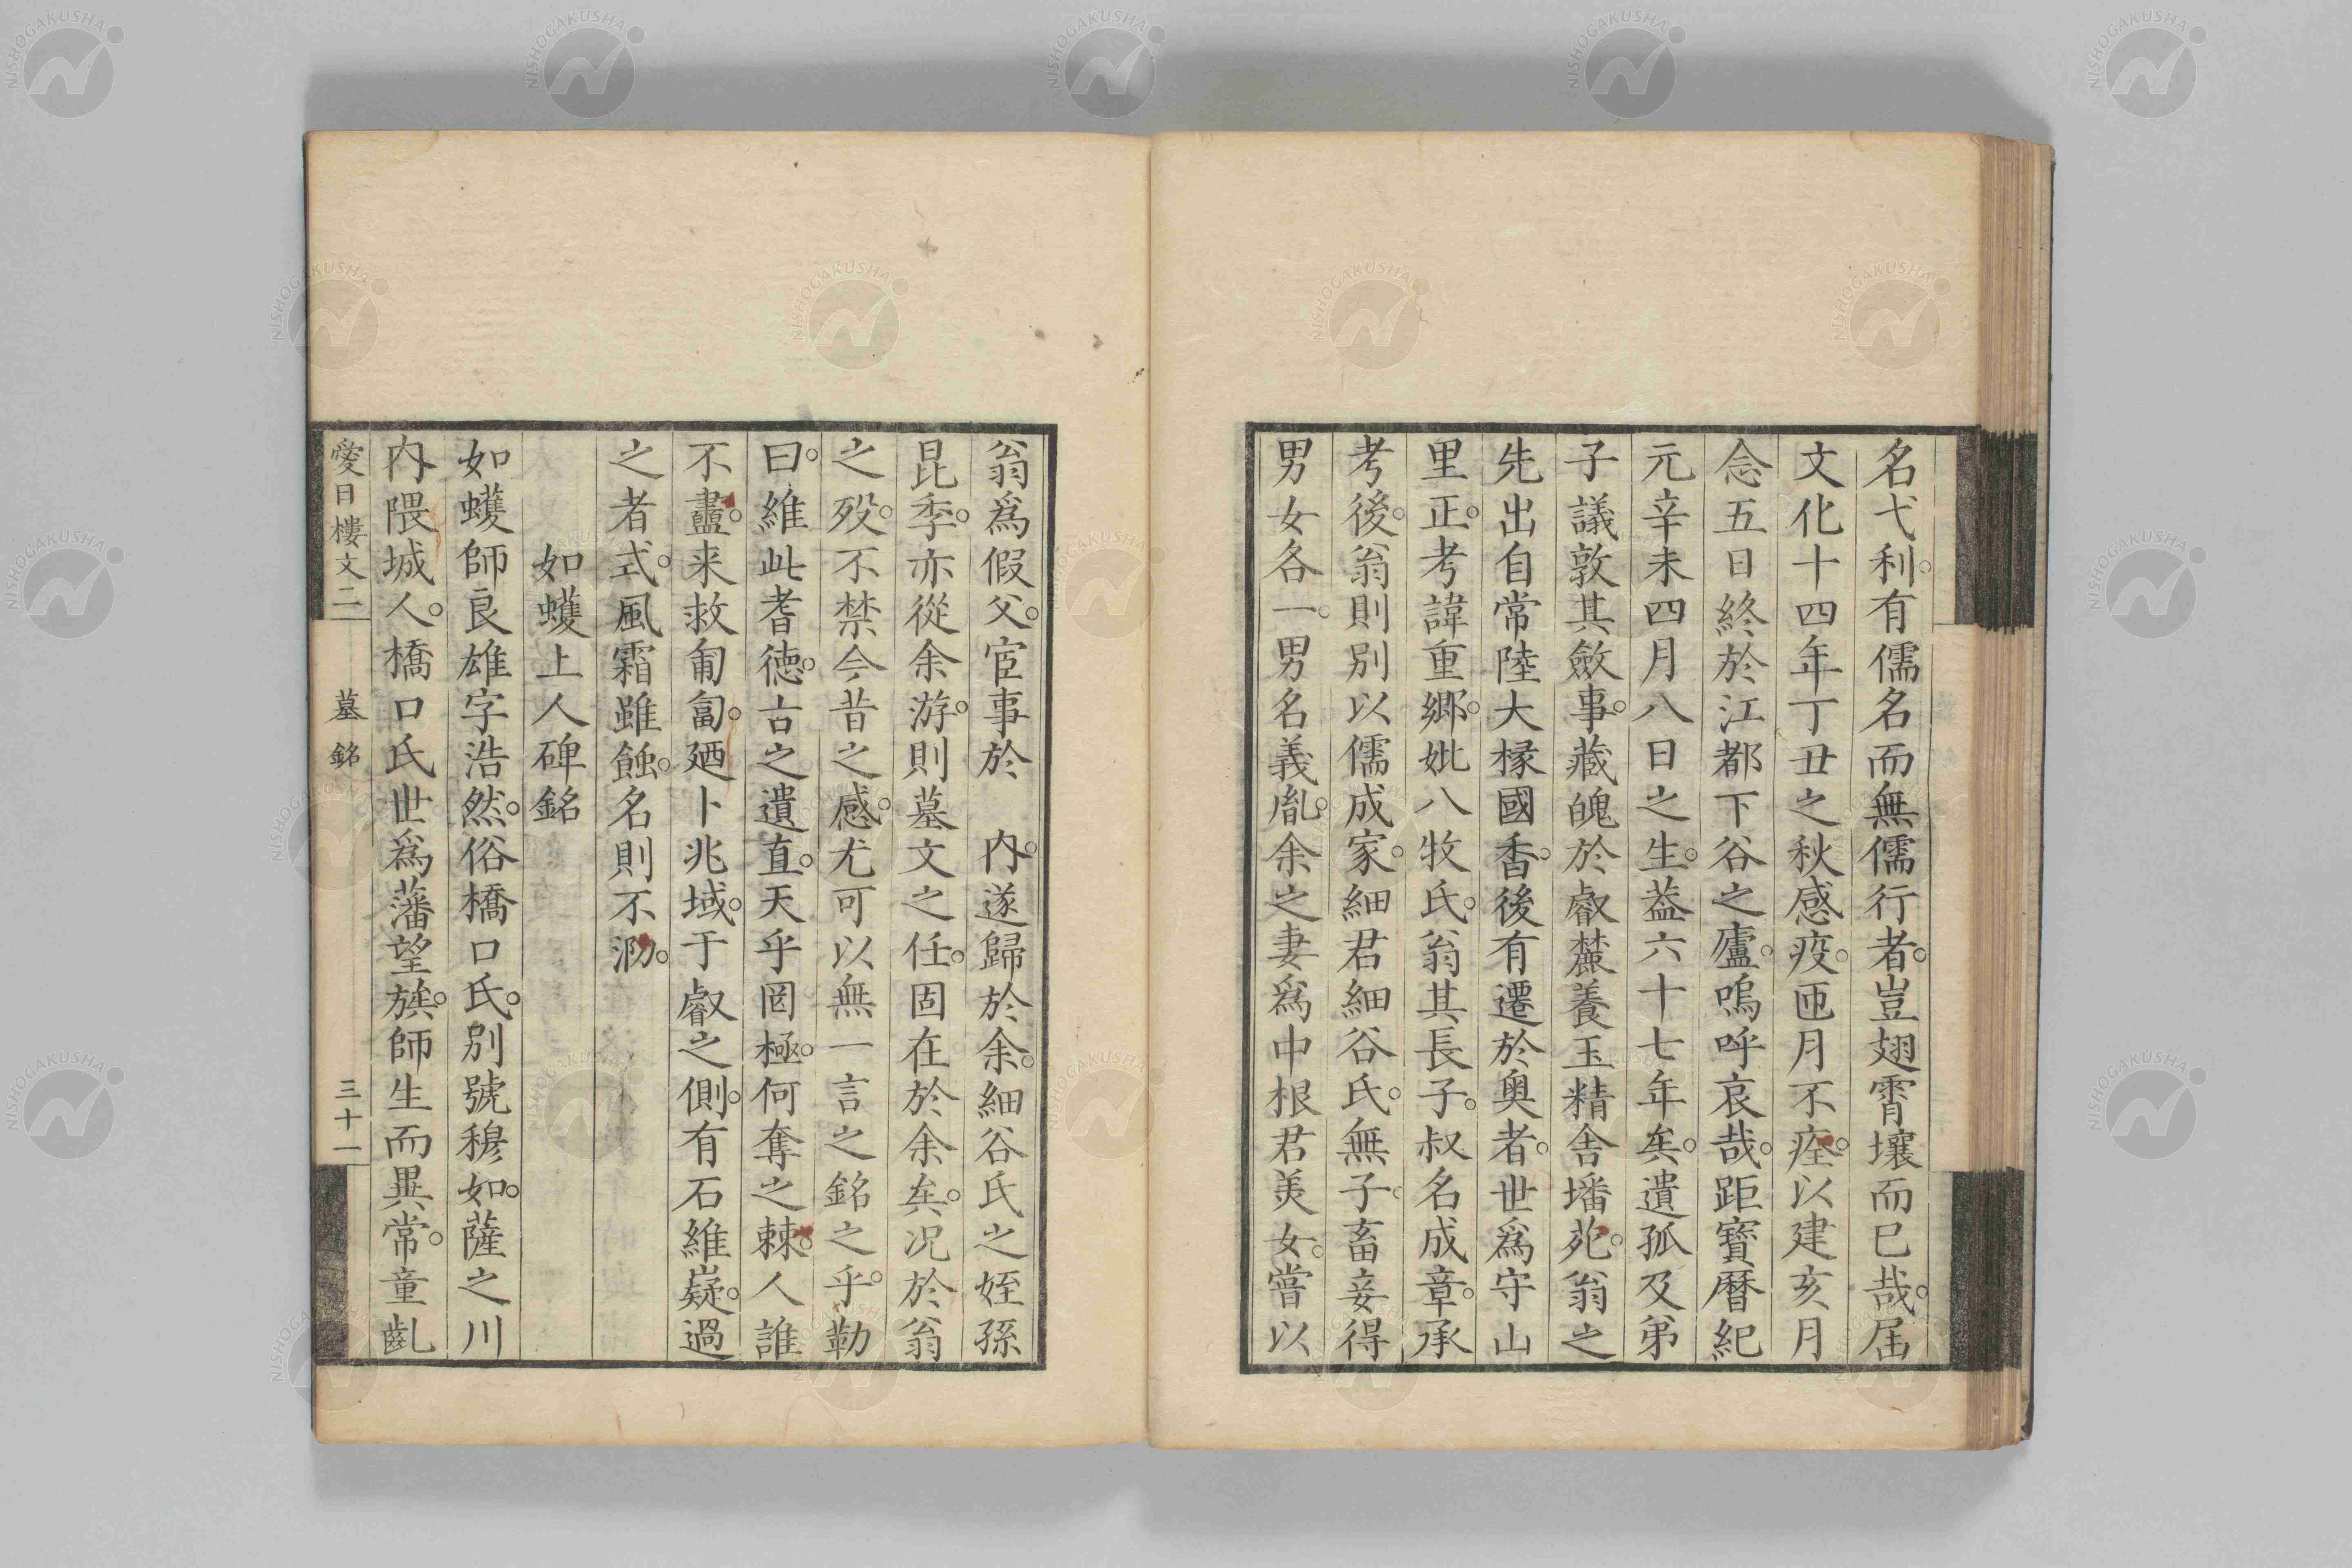 名弋利。有儒名而無儒行者。豈翅霄壤而已哉。屆
文化十四年丁丑之秋感疫。匝月不痊。以建亥月
念五日終於江都下谷之廬。嗚呼哀哉。距寶曆紀
元辛未四月八日之生。葢六十七年矣。遺孤及弟
子議敦其斂事。藏魄於叡麓養玉精舍墦苑。翁之
先出自常陸大椽國香。後有遷於奥者。世爲守山
里正。考諱重郷。妣八牧氏。翁其長子。叔名成章。承
考後。翁則別以儒成家。細君細谷氏。無子。畜妾得
男女各一。男名義胤。余之妻爲中根君美女。嘗以
翁爲假父。宦事於　內。遂歸於余。細谷氏之姪孫
昆季。亦從余游。則墓文之任。固在於余矣。况於翁
之歿。不禁今昔之感。尤可以無一言之銘之乎。勒
曰。維此耆德。古之遺直。天乎罔極。何奪之棘。人誰
不盡。來救匍匐。廼卜兆域。于叡之側。有石維嶷。過
之者式。風霜雖蝕。名則不泐。
如蠖上人碑銘
如蠖師良雄字浩然。俗橋口氏。別號穆如。薩之川
內隈城人。橋口氏世爲藩望族。師生而異常。童齓
愛日樓文二　墓銘　三十一
NISHOGAKUSHA